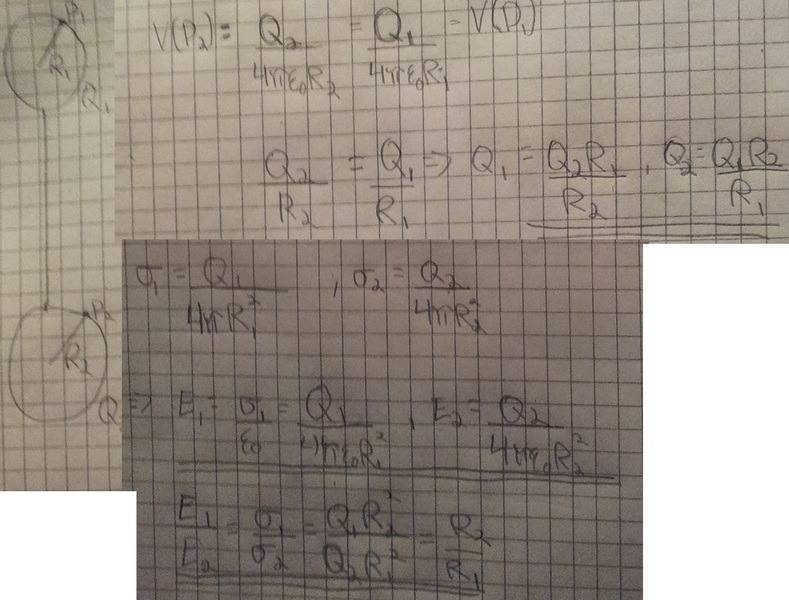 P₁
R₁
Q₁
P₂
R₂
Q
V(P₂) = Q₂/4πε₀R₂ = Q₁/4πε₀R₁ = V(P₁)
Q₂/R₂ = Q₁/R₁ ⇒ Q₁ = Q₂R₁/R₂, Q₂ = Q₁R₂/R₁
σ₁ = Q₁/4πR₁² ; σ₂ = Q₂/4πR₂²
⇒ E₁ = σ₁/ε₀ = Q₁/4πε₀R₁², E₂ = Q₂/4πε₀R₂²
E₁/E₂ = σ₁/σ₂ = Q₁R₂²/Q₂R₁² = R₂/R₁